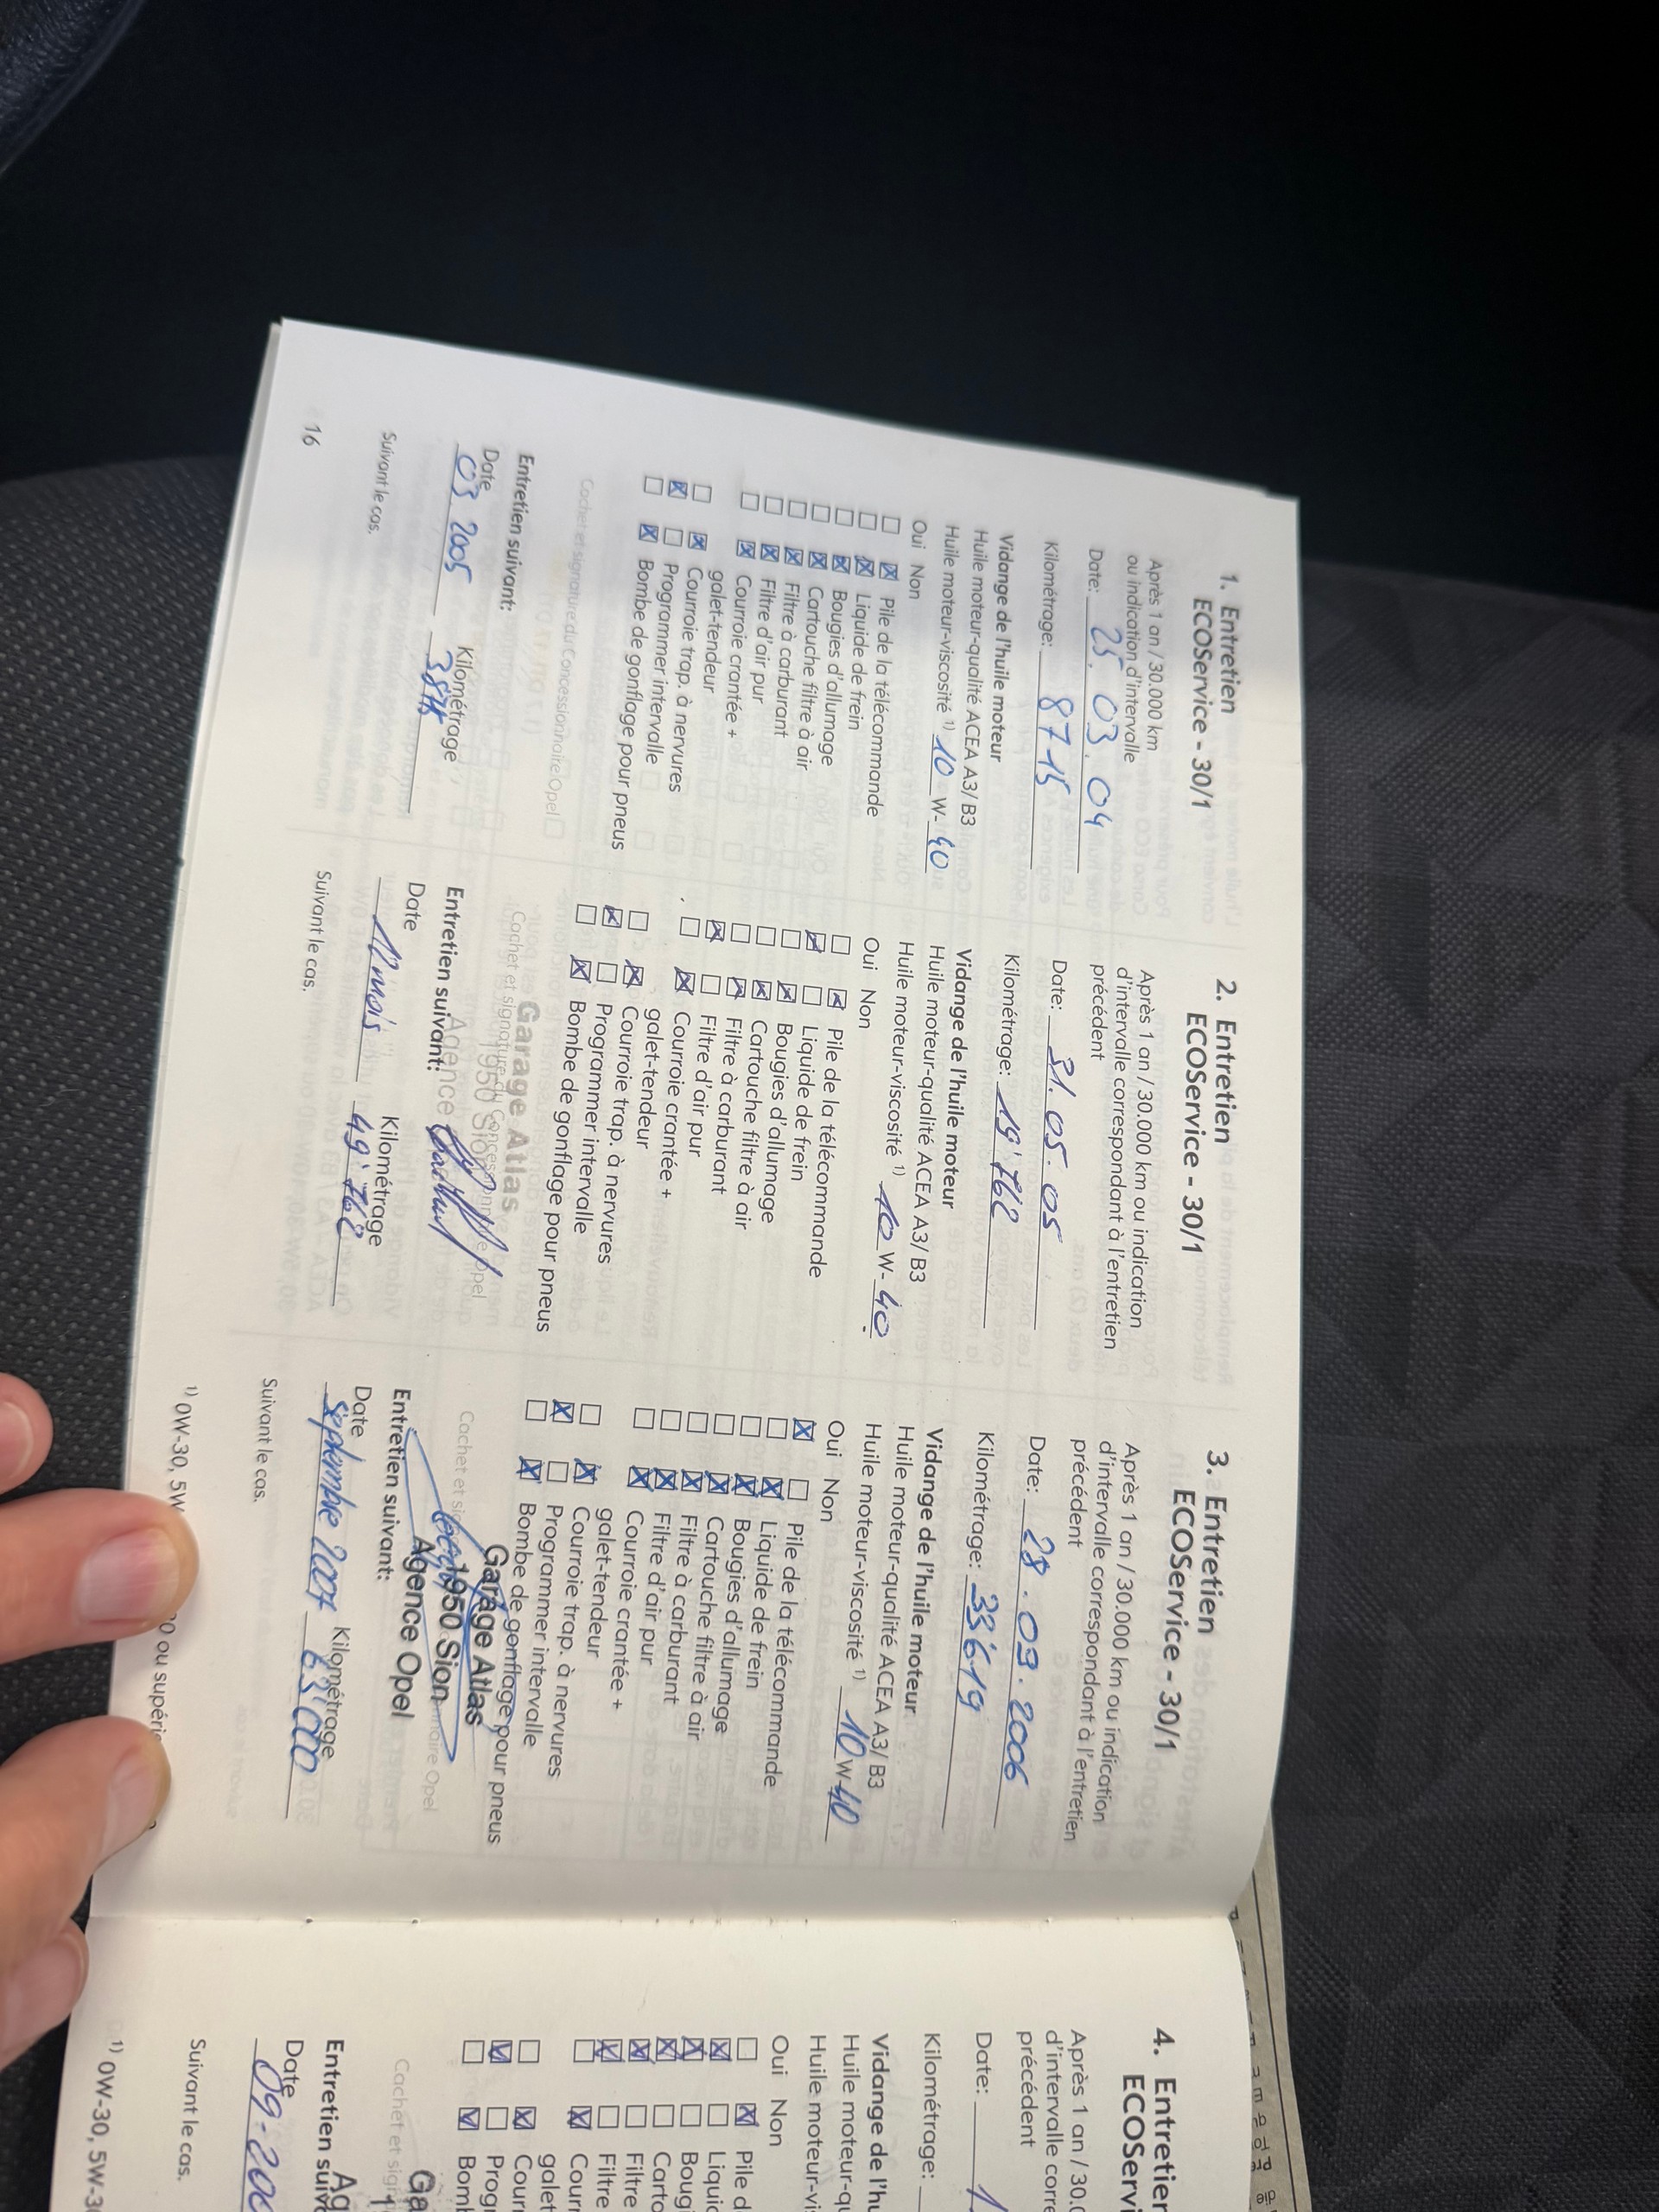 1. Entretien
ECOService - 30/1
Après 1 an / 30.000 km
ou indication d'intervalle
Date: 25. 03. 04
Kilométrage: 8715
Vidange de l'huile moteur
Huile moteur-qualité ACEA A3/ B3
Huile moteur-viscosité 1) 10 W- 40
Oui Non
Pile de la télécommande
Liquide de frein
Bougies d'allumage
Cartouche filtre à air
Filtre à carburant
Filtre d'air pur
Courroie crantée +
galet-tendeur
Courroie trap. à nervures
Programmer intervalle
Bombe de gonflage pour pneus
Cachet et signature du Concessionnaire Opel
Entretien suivant:
Date Kilométrage
03. 2005
Suivant le cas.
16
2. Entretien
ECOService - 30/1
Après 1 an / 30.000 km ou indication
d'intervalle correspondant à l'entretien
précédent
Date: 31. 05. 05
Kilométrage: 19'762
Vidange de l'huile moteur
Huile moteur-qualité ACEA A3/ B3
Huile moteur-viscosité 1) 10 W- 40
Oui Non
Pile de la télécommande
Liquide de frein
Bougies d'allumage
Cartouche filtre à air
Filtre à carburant
Filtre d'air pur
Courroie crantée +
galet-tendeur
Courroie trap. à nervures
Programmer intervalle
Bombe de gonflage pour pneus
Garage Atlas
Cachet et signature du Concessionnaire Opel
1950 Sion
Agence
Entretien suivant:
Date Kilométrage
12 mois 49'762
Suivant le cas.
3. Entretien
ECOService - 30/1
Après 1 an / 30.000 km ou indication
d'intervalle correspondant à l'entretien
précédent
Date: 28. 09. 2006
Kilométrage: 33'619
Vidange de l'huile moteur
Huile moteur-qualité ACEA A3/ B3
Huile moteur-viscosité 1) 10 W- 40
Oui Non
Pile de la télécommande
Liquide de frein
Bougies d'allumage
Cartouche filtre à air
Filtre à carburant
Filtre d'air pur
Courroie crantée +
galet-tendeur
Courroie trap. à nervures
Programmer intervalle
Bombe de gonflage pour pneus
Garage Atlas
1950 Sion
Cachet et si naire Opel
Agence Opel
Entretien suivant:
Date Kilométrage
septembre 2007 63'000
Suivant le cas.
1) 0W-30, 5W 0 ou supéri
4. Entretien
ECOServi
Après 1 an / 30.0
d'intervalle corre
précédent
Date: 1
Kilométrage:
Vidange de l'hu
Huile moteur-qu
Huile moteur-vi
Oui Non
Pile d
Liquid
Bougi
Carto
Filtre
Filtre
Courr
galet
Courr
Progr
Bomb
Ga
1
Cachet et sign
Ag
Entretien suiv
Date
09-200
Suivant le cas.
1) 0W-30, 5W-3